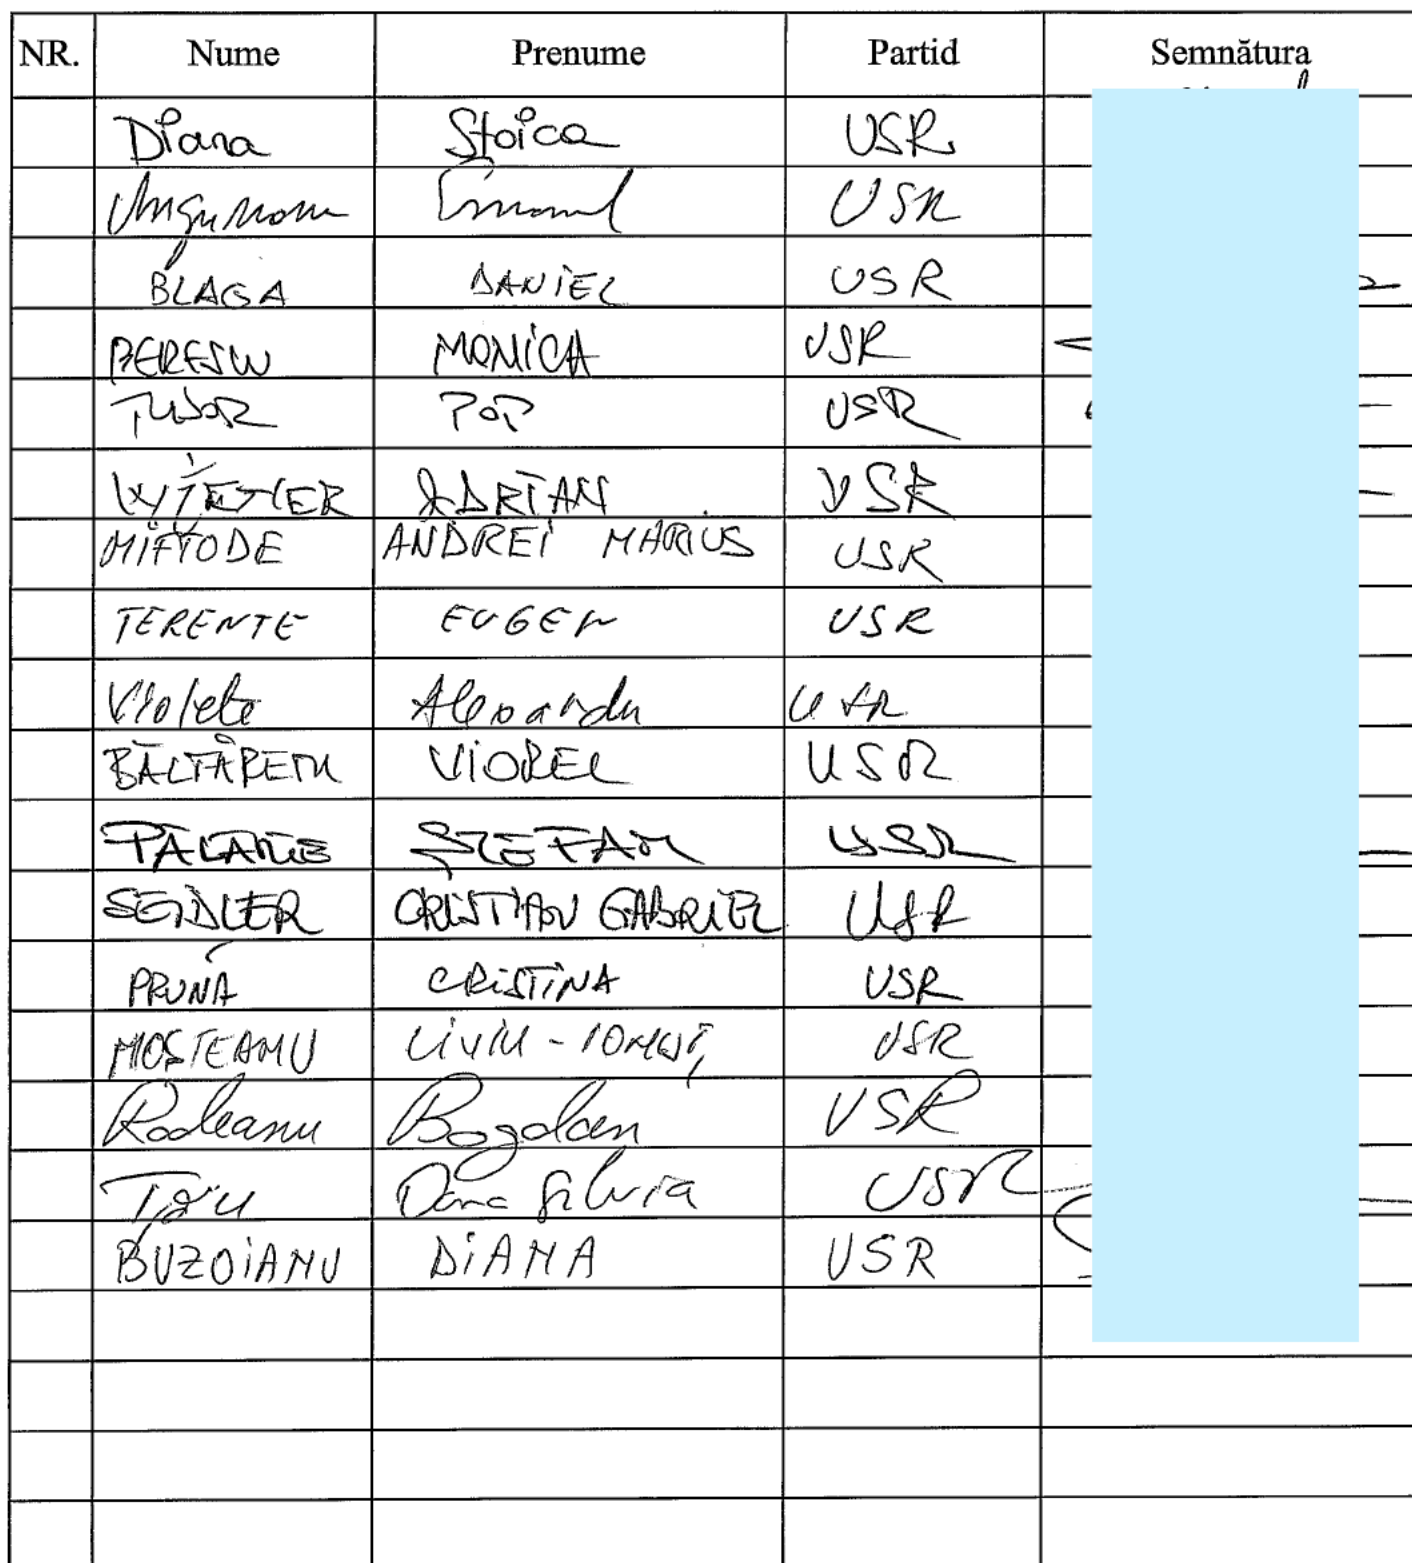 NR. Nume Prenume Partid Semnătura
Diana Stoica USR
Ungureanu Emanuel USR
BLAGA DANIEL USR
BERESCU MONICA USR
TUDOR POP USR
WIENER ADRIAN USR
MIFTODE ANDREI MARIUS USR
TERENTE EUGEN USR
Violeta Alexandru USR
BĂLTĂREȚU VIOREL USR
PĂLĂRIE ȘTEFAN USR
SEIDLER CRISTIAN GABRIEL USR
PRUNĂ CRISTINA USR
MOȘTEANU LIVIU - IONUȚ USR
Rodeanu Bogdan USR
Țîțu Dana Silvia USR
BUZOIANU DIANA USR